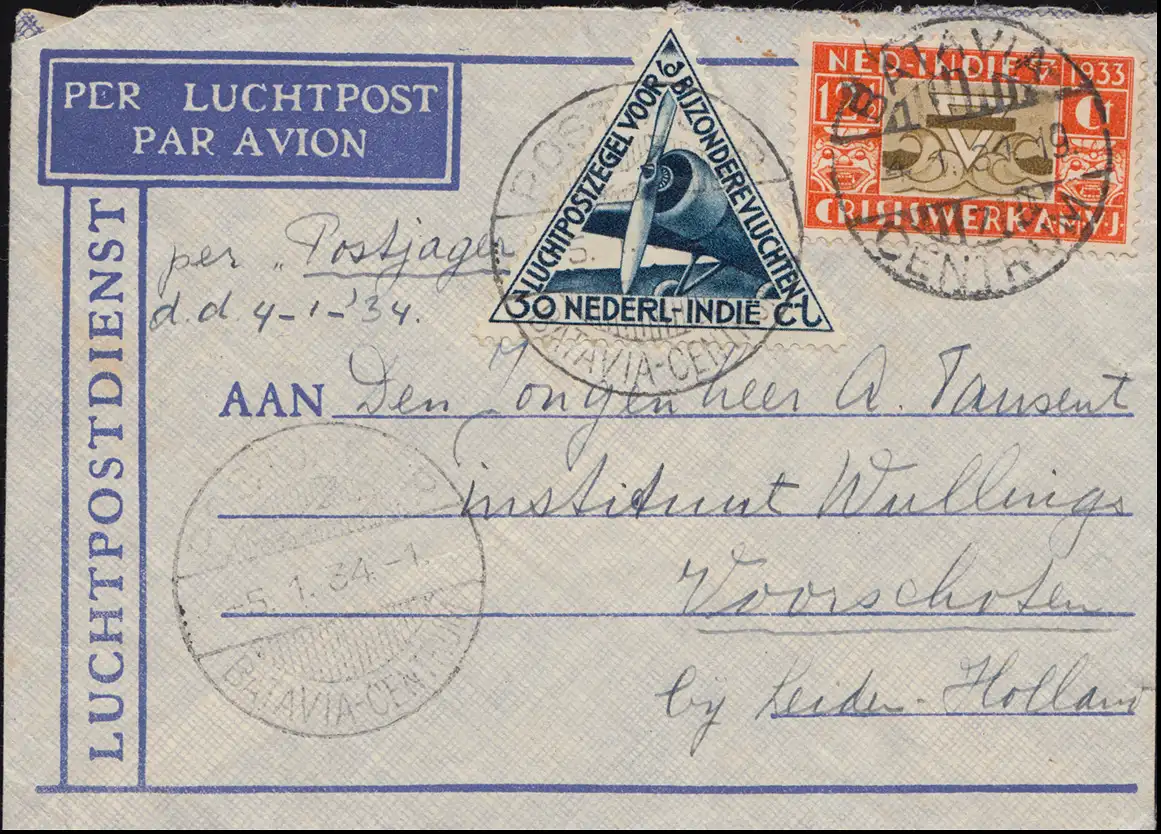 PER LUCHTPOST
PAR AVION
LUCHTPOSTDIENST
LUCHTPOSTZEGEL VOOR BIJZONDERE VLUCHTEN
30 NEDERL-INDIË Ct
NED-INDIE 1933
12½ Ct
CRISISWERK A.M.V.J.
BATAVIA
CENTRUM
POST
BATAVIA-CENTRUM
per „Postjager
d.d 4-1-'34.
AAN Den Jongenheer A. Tansent
instituut Wullings
Voorschoten
by Leiden - Holland
-5. 1. 34.-1.
BATAVIA-CENTRUM